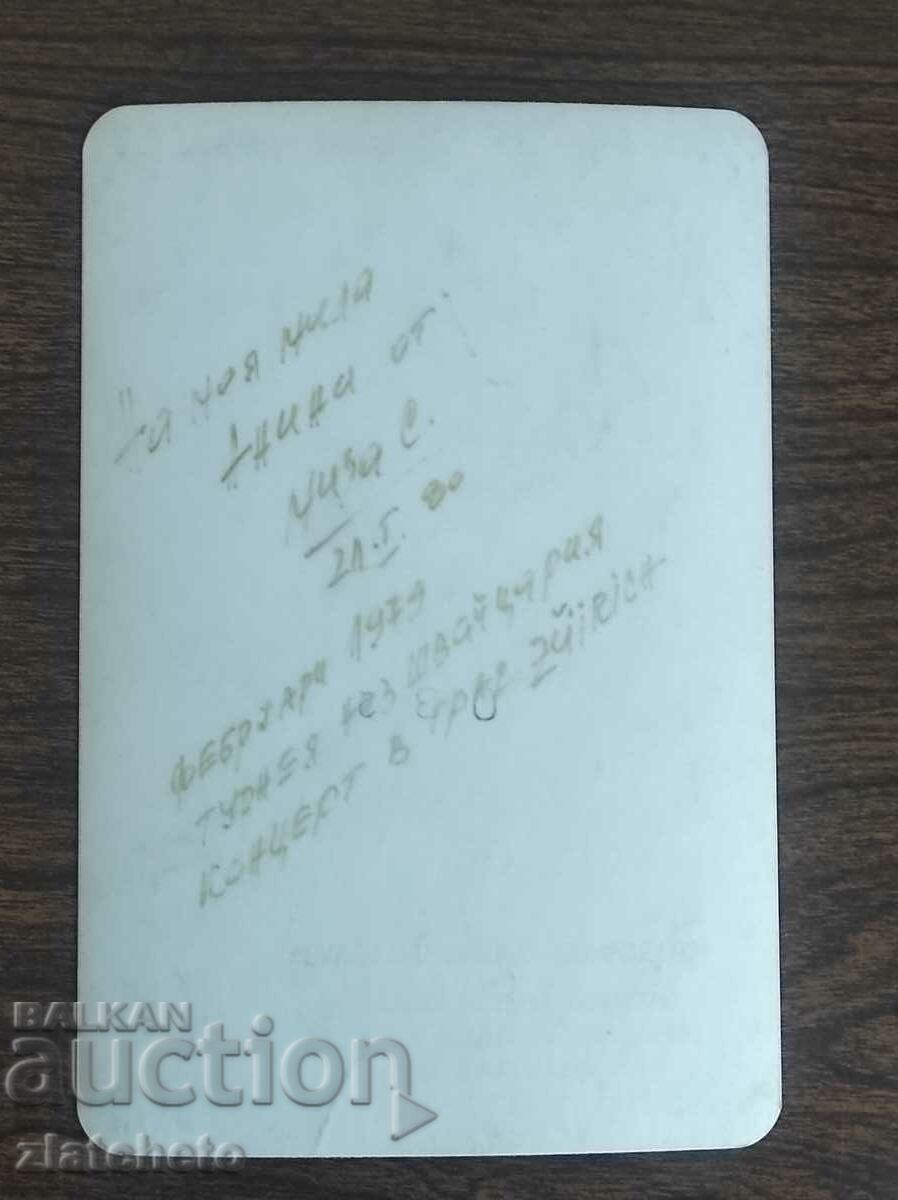 На моя мила
Жини от
Миза С.
21.5.80
ФЕБРУАРИ 1979
ТУРНЕЯ ИЗ ШВАЙЦАРИЯ
КОНЦЕРТ В ГРАД ZÜIRICH
BALKAN
auction
zlatcheto